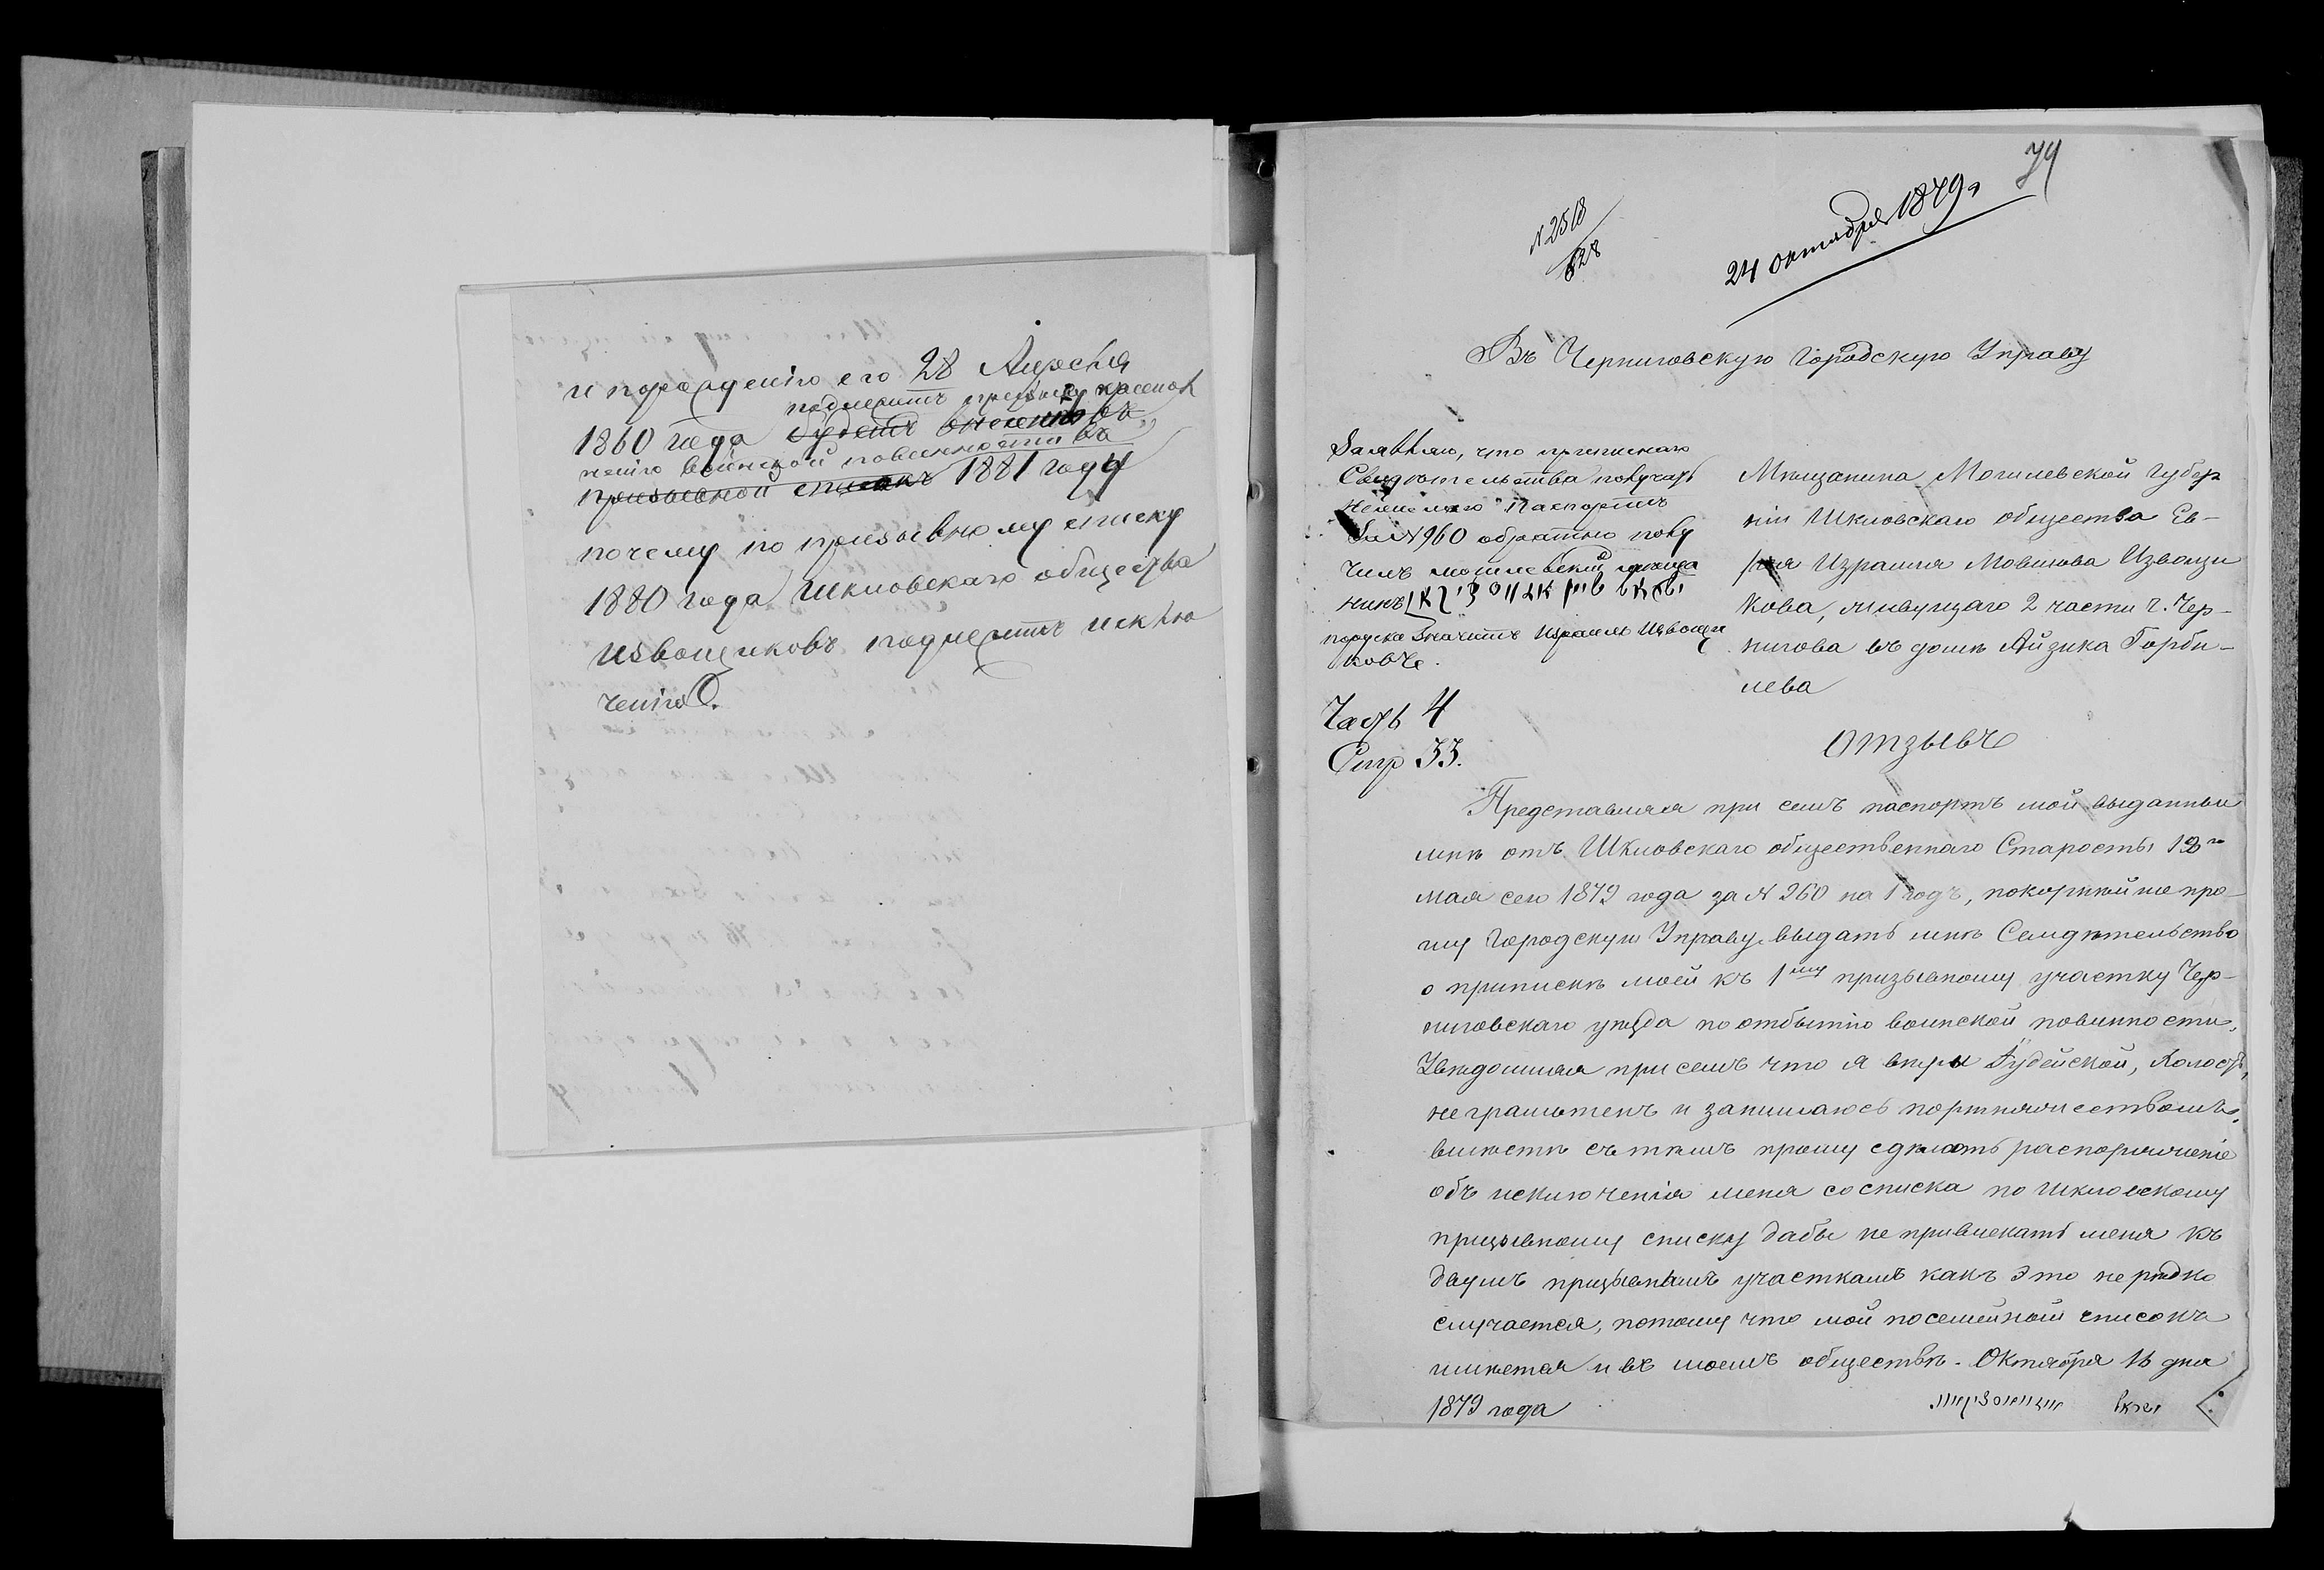 и по рожденію его 28 Апрѣля
подлежитъ
1860 года будетъ внесенъ въ
нію воинской повинности въ
призывной списокъ 1881 году
почему по призывному списку
1880 года Шкловскаго общества
Извощиковъ подлежитъ исклю
ченію.
74
N 2518
828
24 октября 1879 г
Въ Черниговскую Городскую Управу
Заявляю, что приписное
Свидѣтельство получилъ
Паспортъ
За N 960 обратно полу
чилъ могилевскій мѣща
нинъ
по русски Значитъ Израиль Извощи
ковъ.
Часть 4
Стр 33.
Мѣщанина Могилевской Губер
ніи Шкловскаго общества Ев-
рея Израиля Мовшова Извощи
кова, живущаго 2 части г. Чер-
нигова въ домѣ Айзика Горби-
лева
Отзывъ
Представляя при семъ паспортъ мой выданный
мнѣ отъ Шкловскаго общественнаго Старосты 12го
мая сего 1879 года за N 960 на 1 годъ, покорнѣйше про-
шу Городскую Управу выдать мнѣ Свидѣтельство
о припискѣ моей къ 1му призывному участку Чер-
ниговскаго уѣзда по отбытію воинской повинности,
Увѣдомляя при семъ что я вѣры Іудейской, Холостъ,
не грамотенъ и занимаюсь портняжествомъ,
вмѣстѣ съ тѣмъ прошу сдѣлать распоряженіе
объ исключенія меня со списка по Шкловскому
призывному списку дабы не привлекать меня къ
двумъ призывнымъ участкамъ какъ это не рѣдко
случается, потому что мой посемейной списокъ
имѣется и въ моемъ обществѣ. Октября 16 дня
1879 года